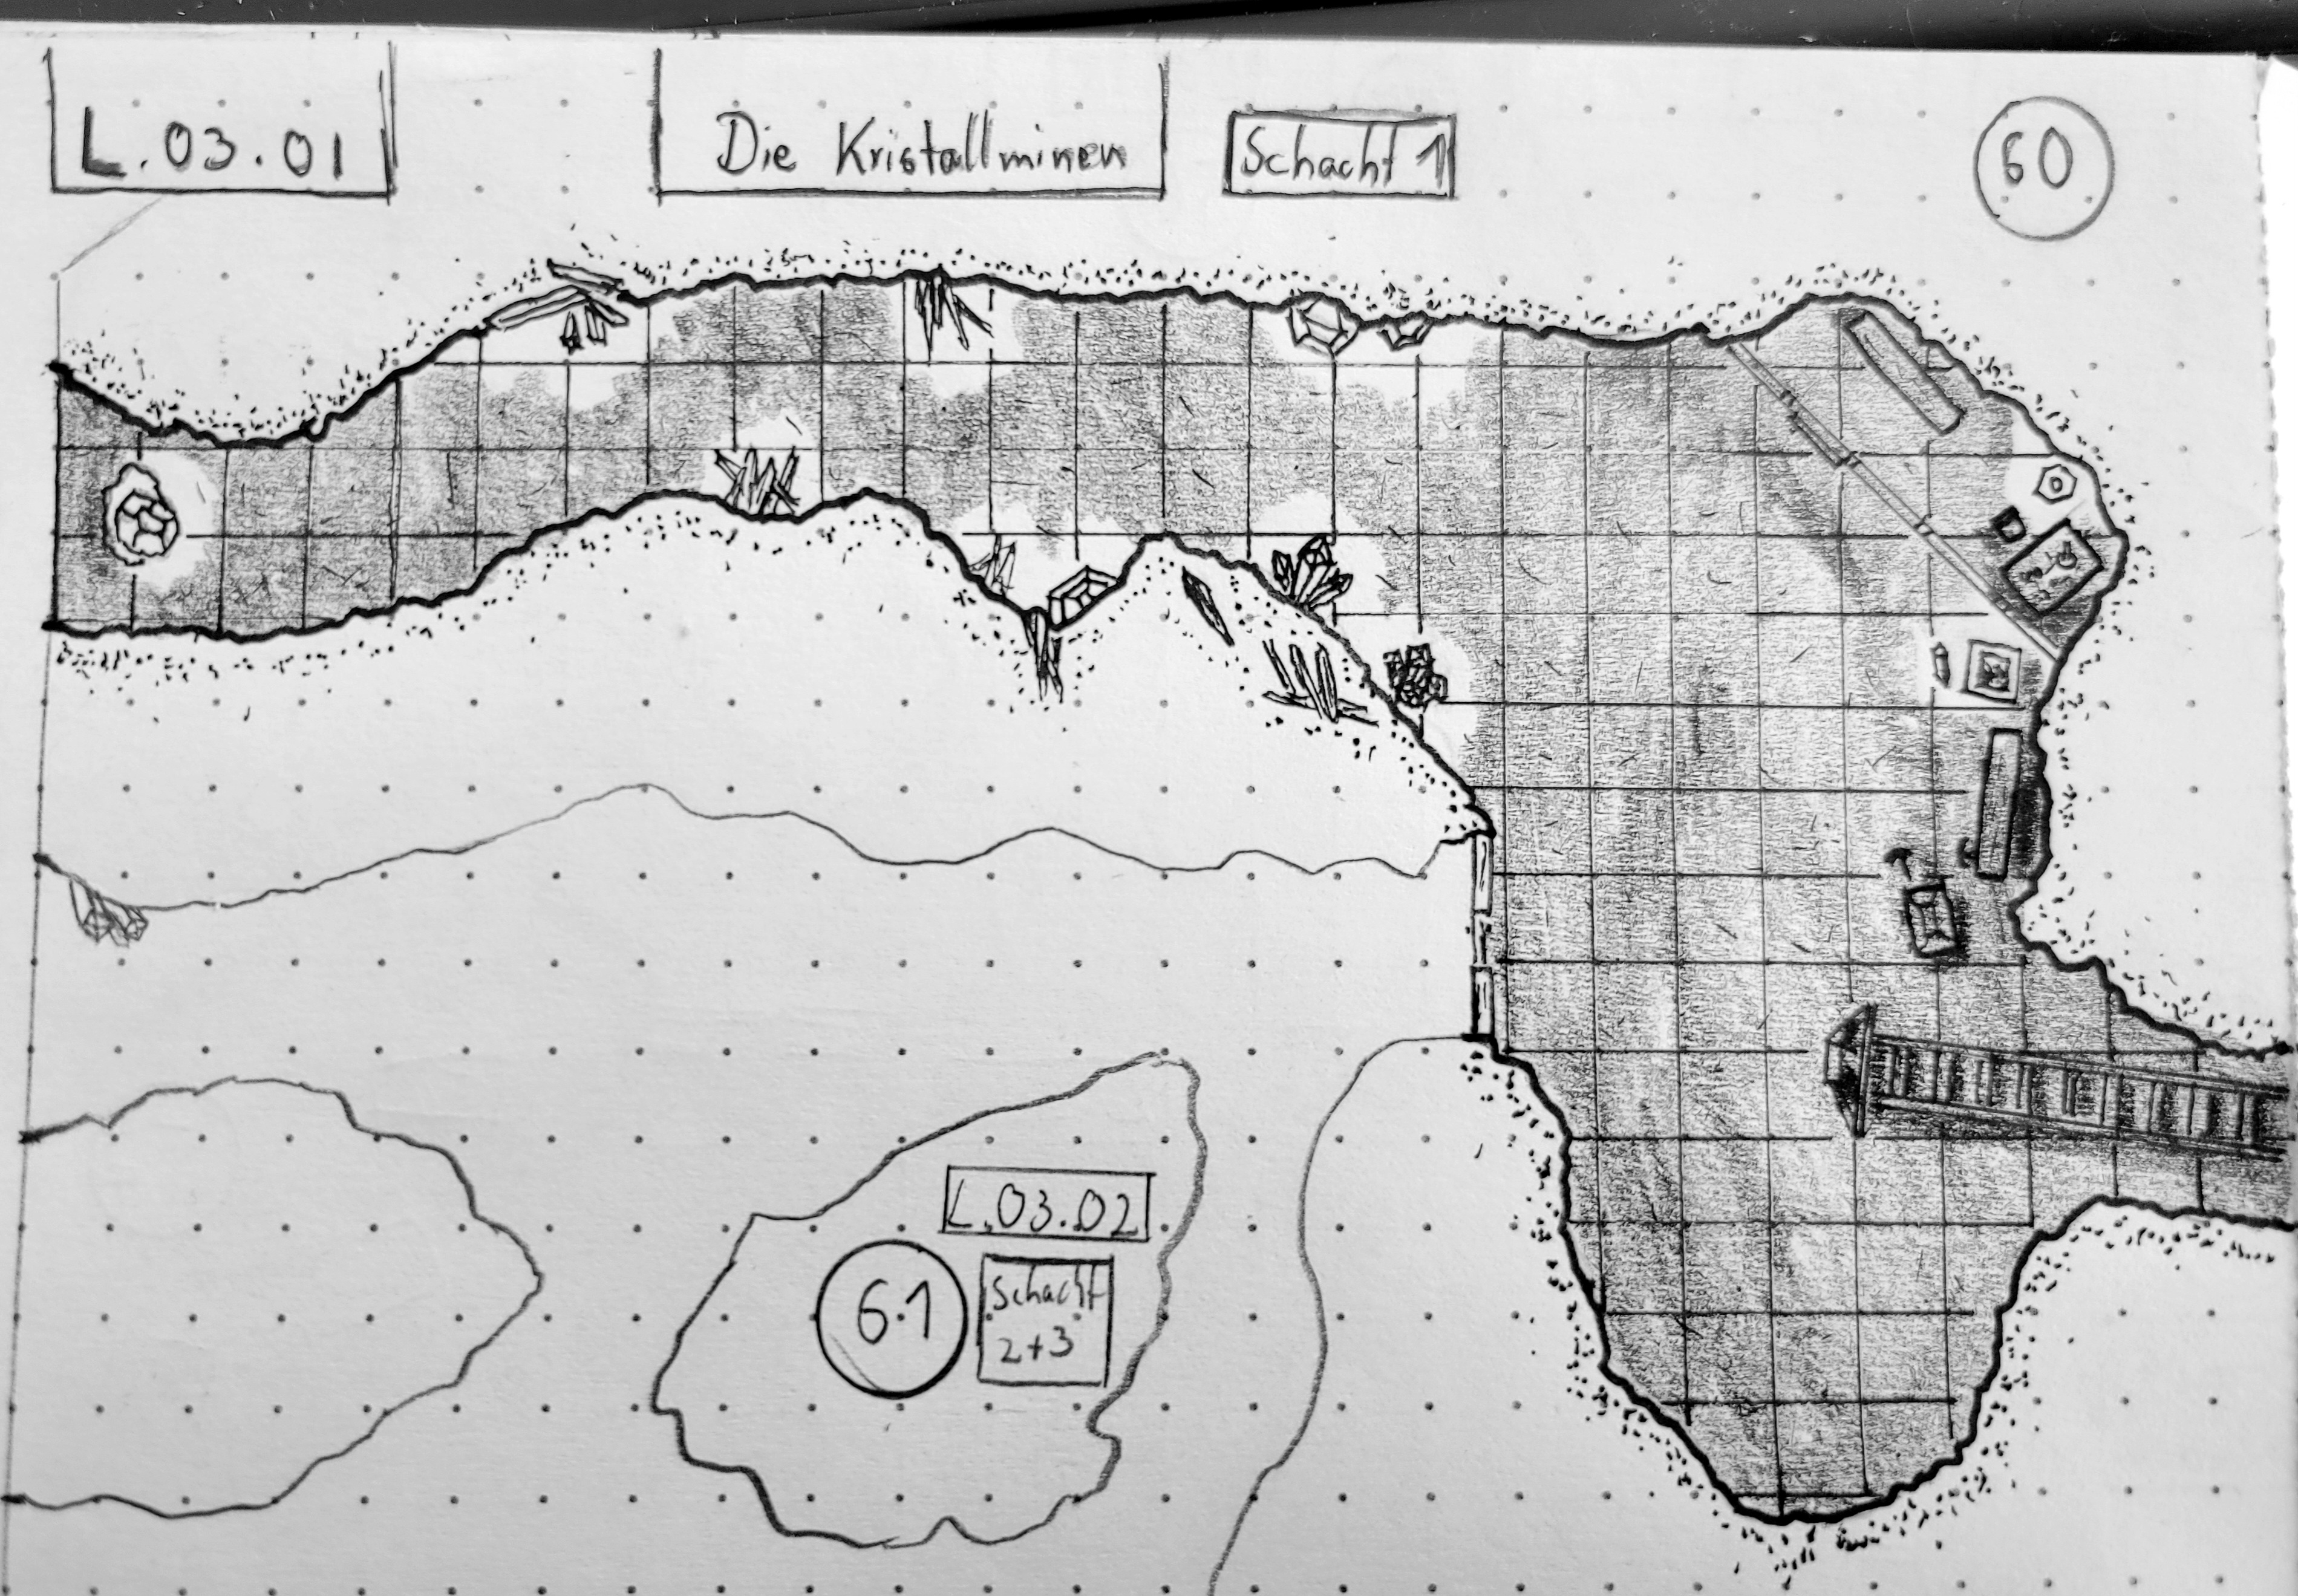 L.03.01
Die Kristallminen
Schacht 1
60
L.03.02
61
Schacht
2+3